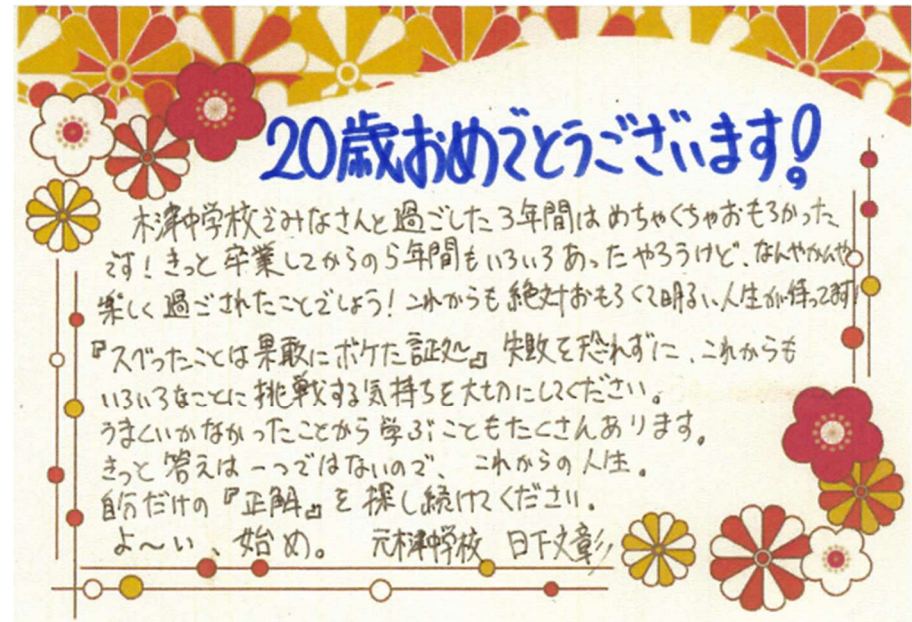 20歳おめでとうございます!
木津中学校でみなさんと過ごした3年間はめちゃくちゃおもろかった
です!きっと卒業してからの5年間もいろいろあったやろうけど、なんやかんや
楽しく過ごされたことでしょう!これからも絶対おもろくて明るい人生が待ってます!
『スベったことは果敢にボケた証処』失敗を恐れずに、これからも
いろいろなことに挑戦する気持ちを大切にしてください。
うまくいかなかったことから学ぶこともたくさんあります。
きっと答えは一つではないので、これからの人生。
自分だけの『正解』を探し続けてください。
よ〜い、始め。 元木津中学校 日下文彰